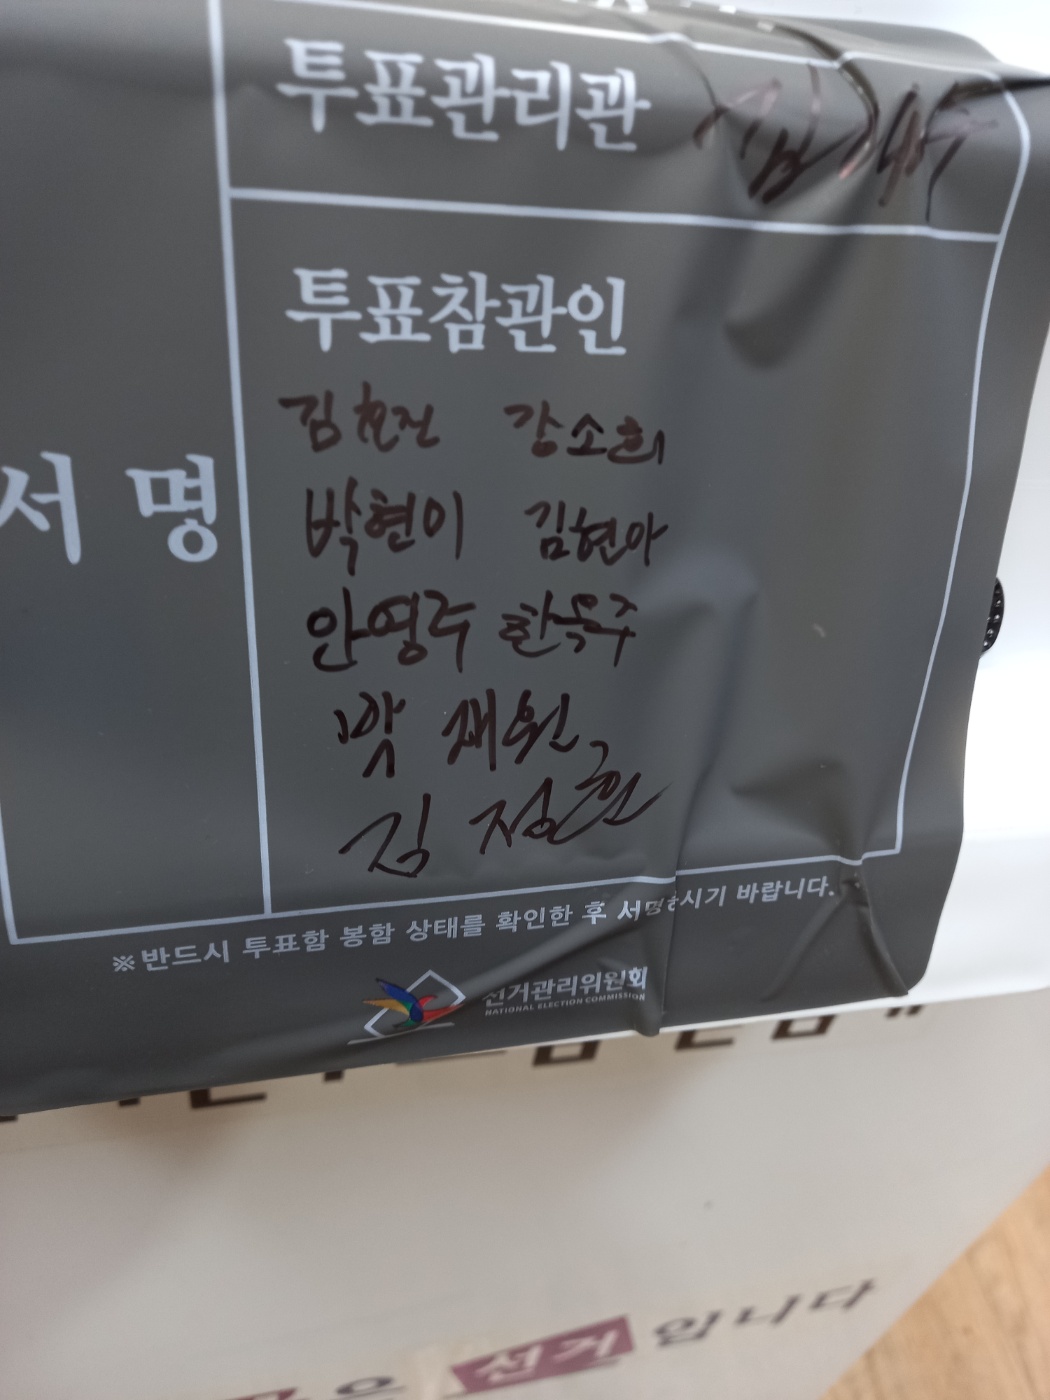 투표관리관
투표참관인
서명
강소희
박현이 김현아
안영주 한옥주
박재원
김정환
※반드시 투표함 봉함 상태를 확인한 후 서명하시기 바랍니다.
선거관리위원회
NATIONAL ELECTION COMMISSION
은 선거 입니다